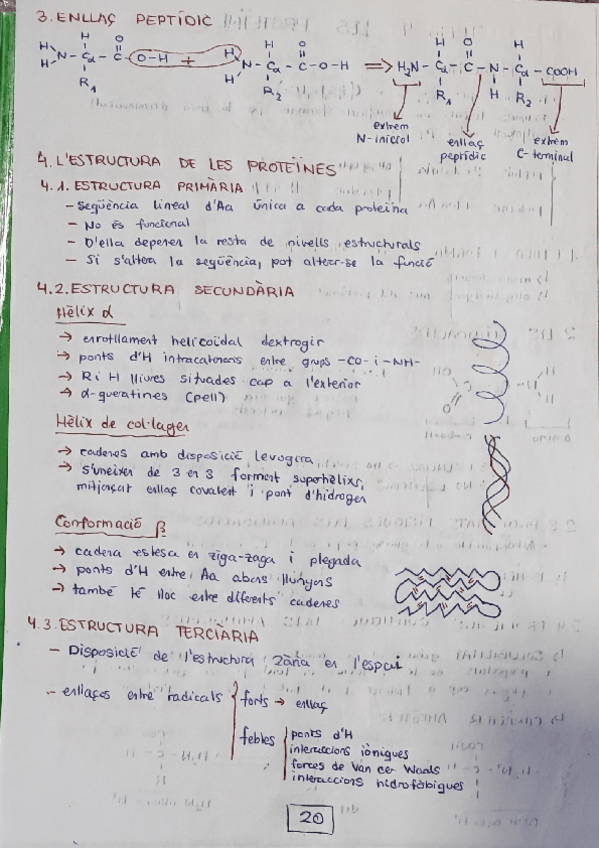 3. ENLLAÇ PEPTÍDIC
H H O H H O H O H
H N - Cα - C - O - H + H N - Cα - C - O - H ⇒ H₂N - Cα - C - N - Cα - COOH
H R₁ H R₂ R₁ H R₂
extrem N-inicial enllaç peptídic extrem C-terminal
4. L'ESTRUCTURA DE LES PROTEÏNES
4.1. ESTRUCTURA PRIMÀRIA
- Seqüència lineal d'Aa única a cada proteïna
- No és funcional
- D'ella depenen la resta de nivells estructurals
- Si s'altera la seqüència, pot alterar-se la funció
4.2. ESTRUCTURA SECUNDÀRIA
Hèlix α
→ enrotllament helicoïdal dextrogir
→ ponts d'H intracatenaris entre grups -CO- i -NH-
→ R i H lliures situades cap a l'exterior
→ α-queratines (pell)
Hèlix de col·lagen
→ cadenes amb disposició levogira
→ s'uneixen de 3 en 3 formant superhèlixs,
mitjançat enllaç covalent i pont d'hidrogen
Conformació β
→ cadena estesa en ziga-zaga i plegada
→ ponts d'H entre Aa abans llunyans
→ també té lloc entre diferents cadenes
4.3. ESTRUCTURA TERCIÀRIA
- Disposició de l'estructura 2ària en l'espai
- enllaços entre radicals
forts → enllaç
febles
ponts d'H
interaccions iòniques
forces de Van der Waals
interaccions hidrofòbiques
20